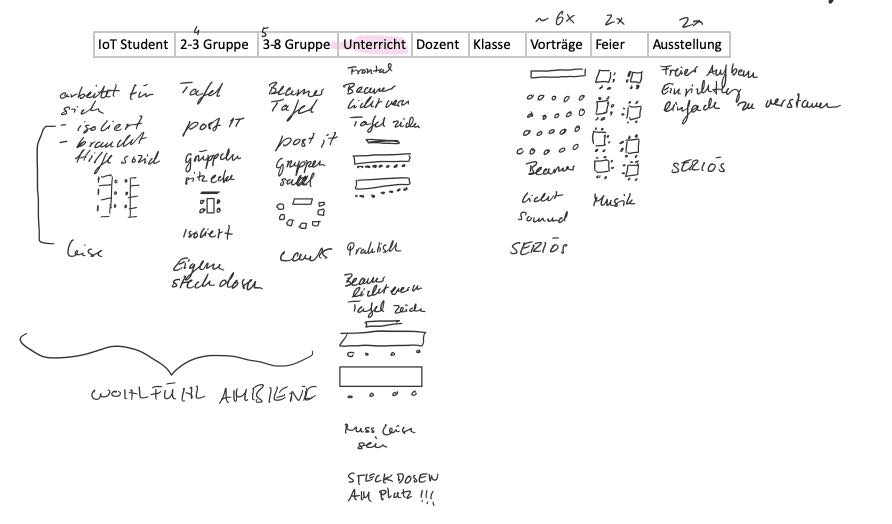 ~ 6x 2x 2x
4 5
IoT Student 2-3 Gruppe 3-8 Gruppe Unterricht Dozent Klasse Vorträge Feier Ausstellung
arbeitet für
sich
- isoliert
- braucht
Hilfe sozial
leise
Tafel
post IT
grüppchen
sitzecke
Isoliert
Eigene
steckdosen
Beamer
Tafel
post it
Gruppen
laut
Frontal
Beamer
licht vorn
Tafel
Praktisch
Beamer
licht vorn
Tafel
Muss leise
sein
STECKDOSEN
AM Platz !!!
Beamer
licht
Sound
SERIÖS
Musik
Freier Aufbau
Einrichtung
einfach zu verstauen
SERIÖS
WOHLFÜHL AMBIENE